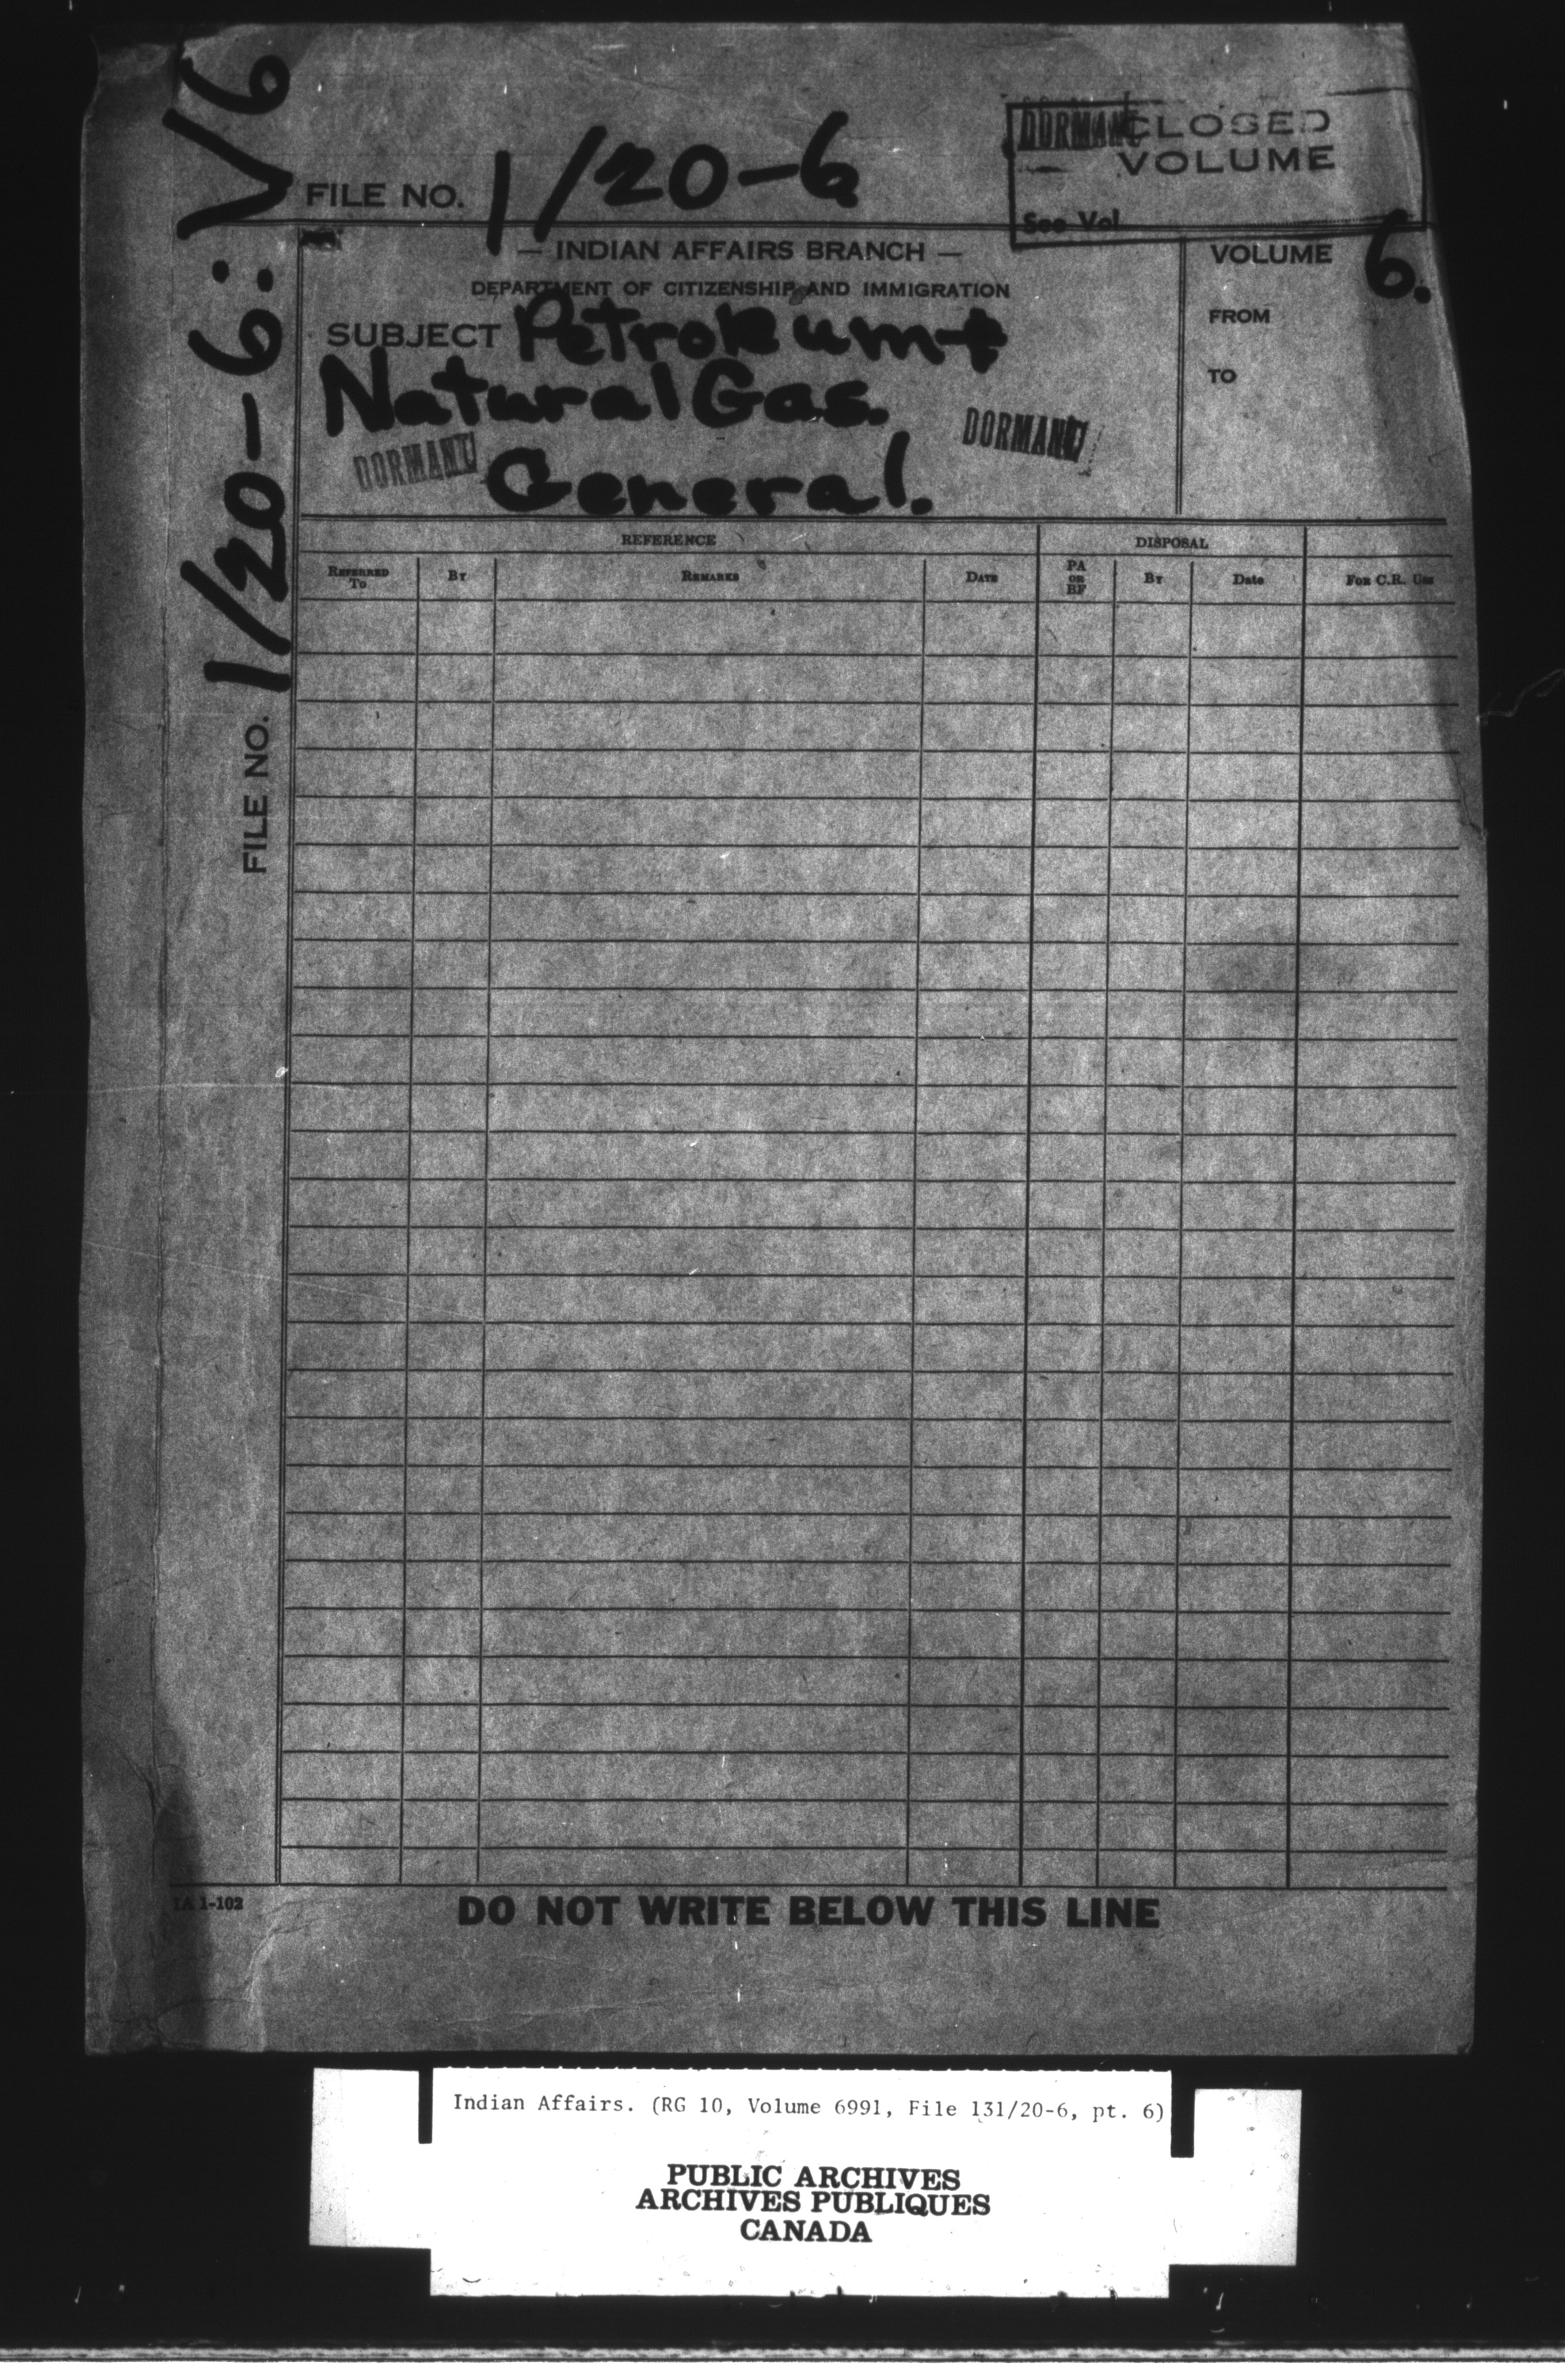 FILE NO. 1/20-6: V6
FILE NO. 1/20-6
DORMANT
CLOSED
VOLUME
See Vol
— INDIAN AFFAIRS BRANCH —
DEPARTMENT OF CITIZENSHIP AND IMMIGRATION
SUBJECT Petroleum +
Natural Gas.
General.
DORMANT
DORMANT
VOLUME 6.
FROM
TO
REFERENCE
DISPOSAL
REFERRED TO
BY
REMARKS
DATE
PA OR BF
BY
Date
FOR C.R. USE
IA 1-102
DO NOT WRITE BELOW THIS LINE
Indian Affairs. (RG 10, Volume 6991, File 131/20-6, pt. 6)
PUBLIC ARCHIVES
ARCHIVES PUBLIQUES
CANADA